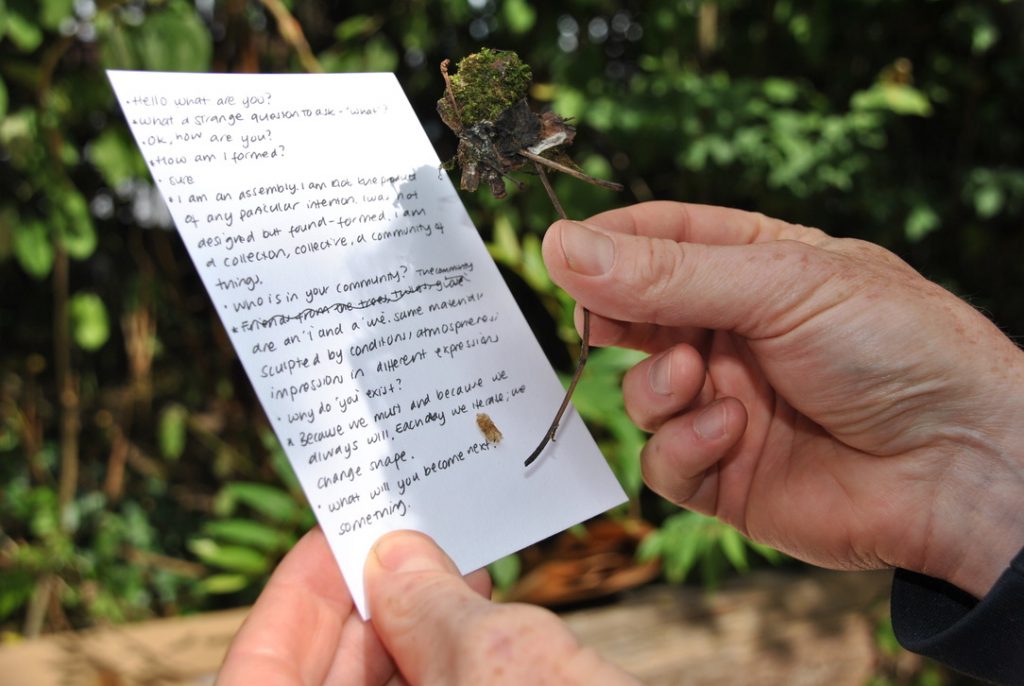 • Hello what are you?
• What a strange question to ask - 'what'?
• Ok, how are you?
• How am I formed?
• Sure
• I am an assembly. I am not the product
of any particular intention. I was not
designed but found-formed. I am
a collection, collective, a community of
things.
• Who is in your community? The community
are an 'i' and a 'we'. same material,
sculpted by conditions, atmospheres,
impression in different expression
• why do 'you' exist?
* Because we must and because we
always will. Each day we iterate; we
change shape.
• what will you become next?
something.